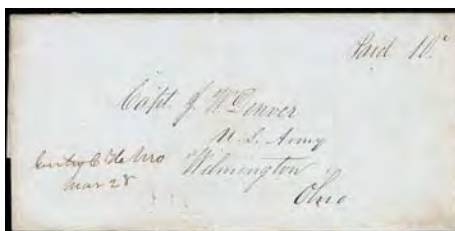 Paid 10c
Capt. J. W. Denver
U. S. Army
Wilmington
Ohio
Mo
Mar 28